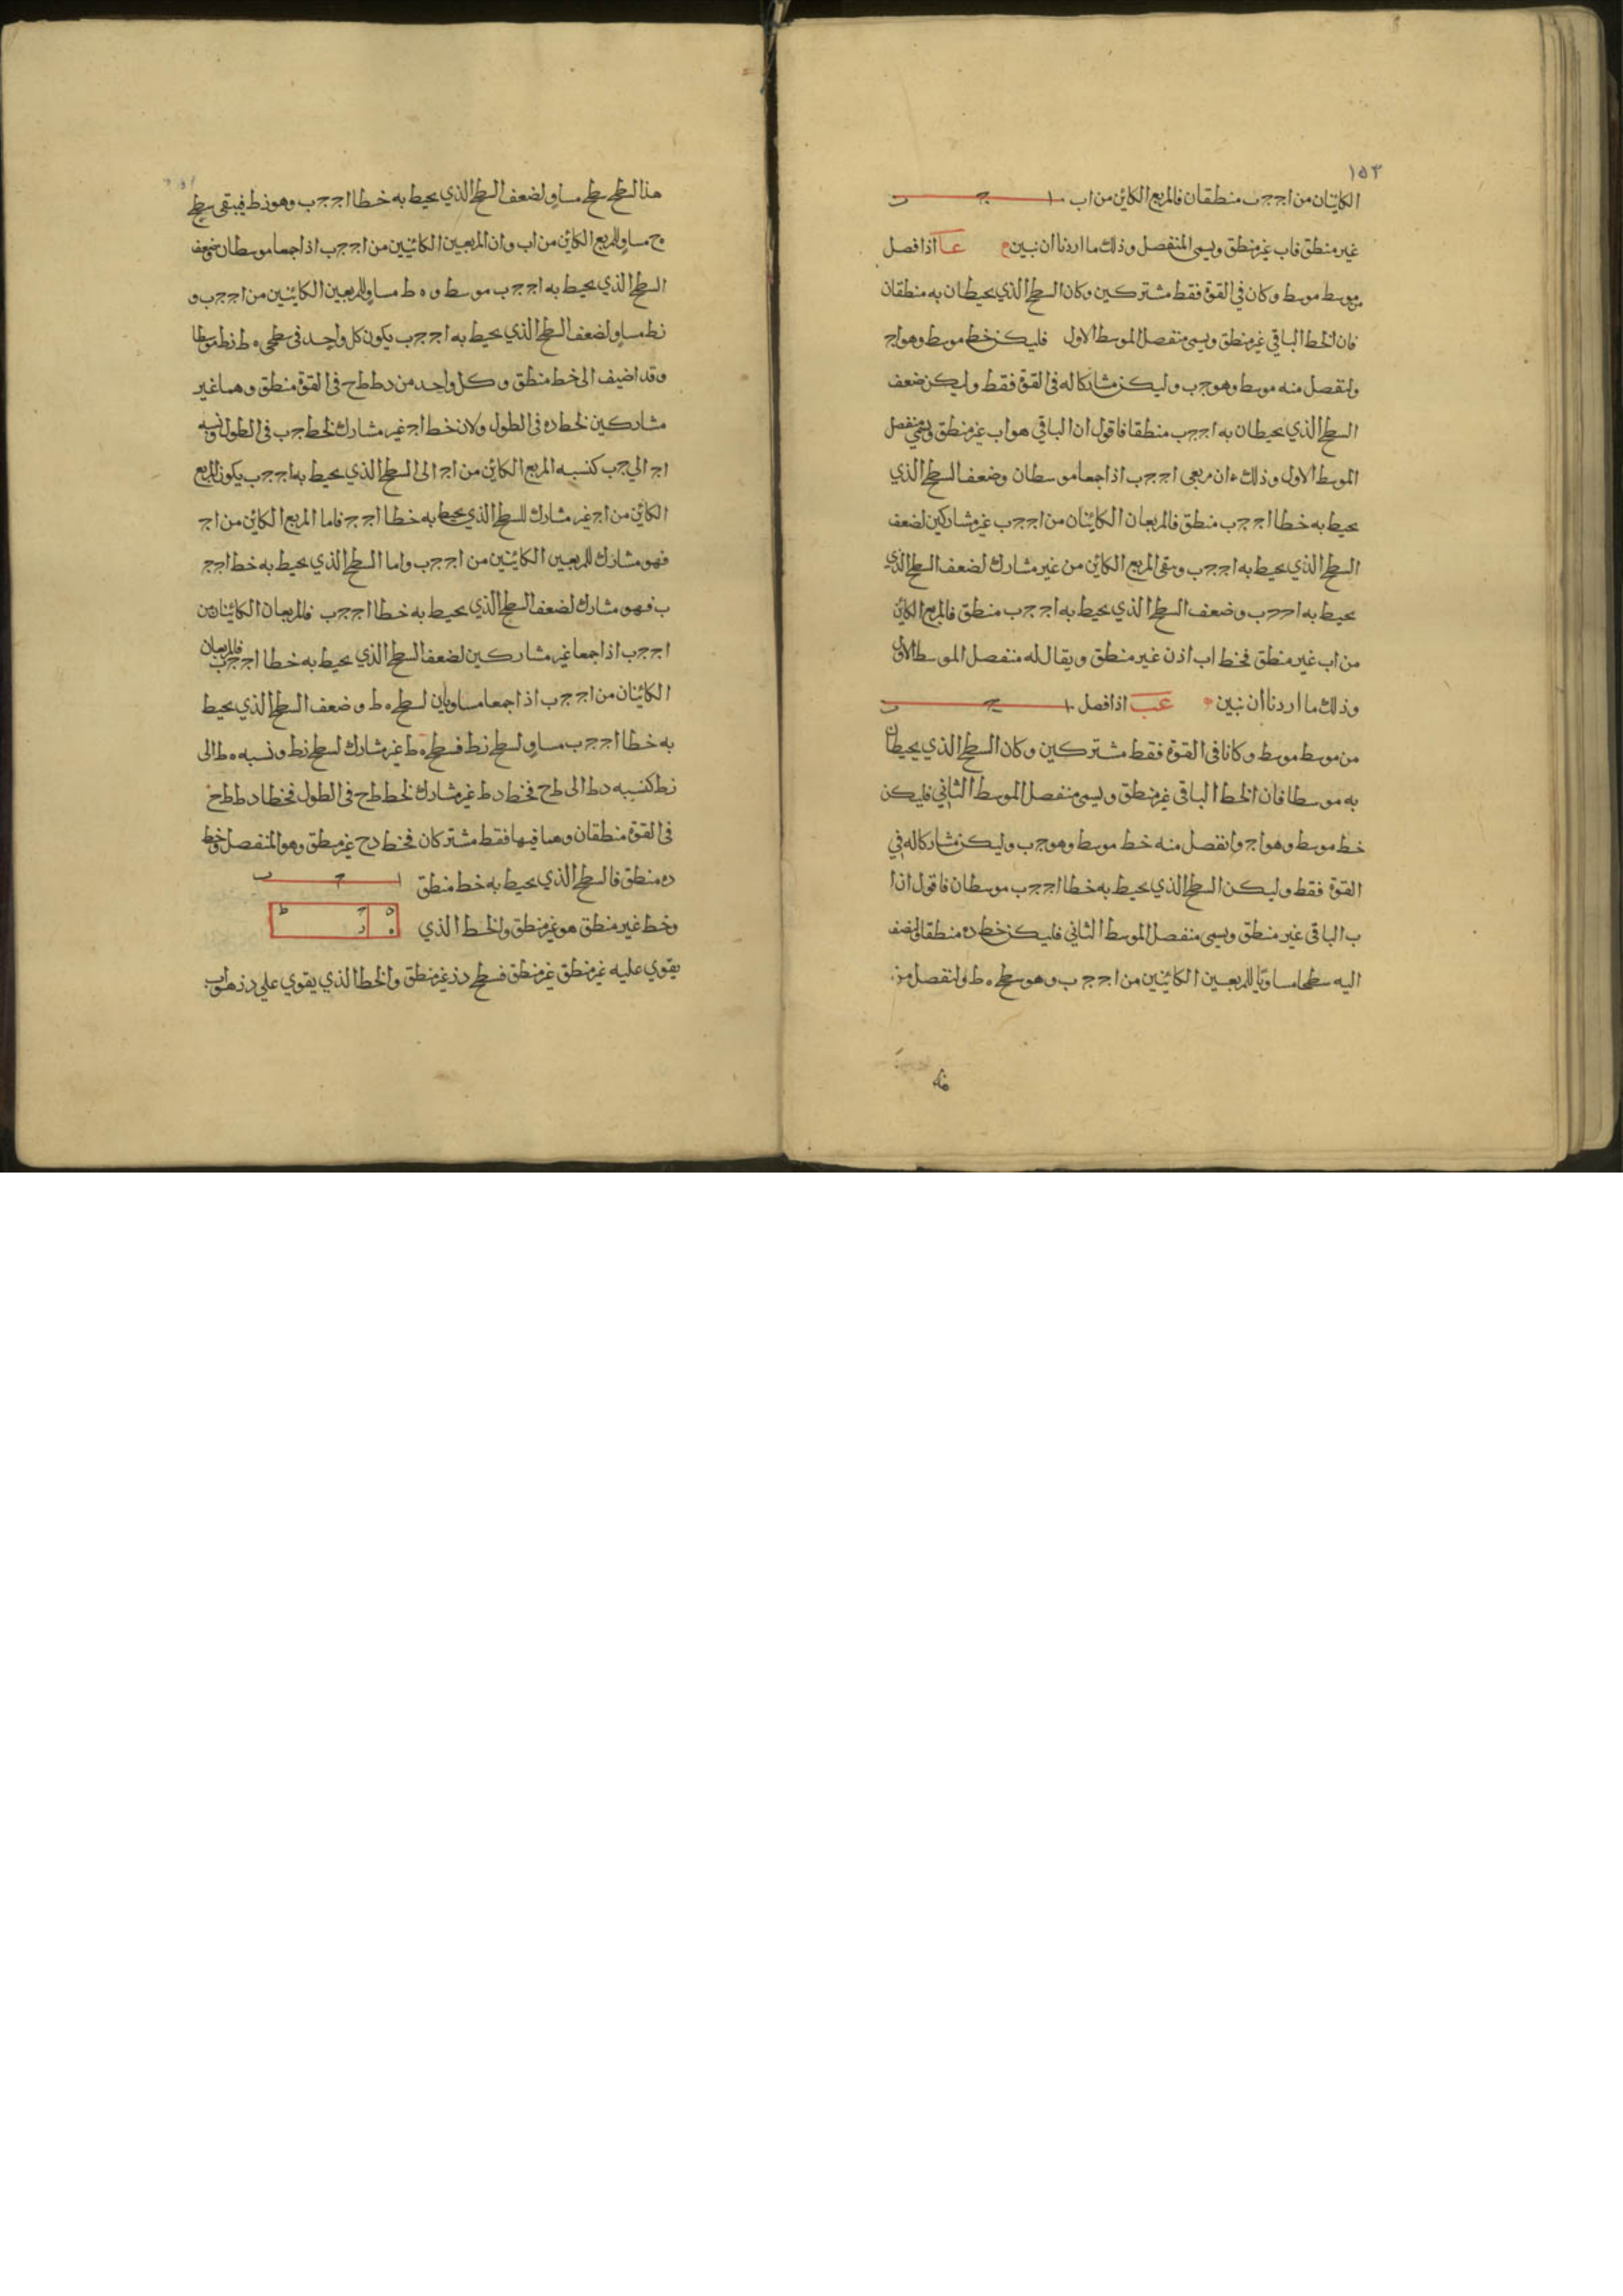 ١٥٣
الكائنان من اج جب منطقان فالمربع الكائن من اب ا ج ب
غير منطق فاب غير منطق ويسمى المنفصل وذلك ما اردنا ان نبين ه عا اذا فصل
من موسط موسط وكان في القوة فقط مشتركين وكان السطح الذي يحيطان به منطقان
فان الخط الباقي غير منطق ويسمى منفصل الموسط الاول فليكن خط موسط وهو اج
ولنفصل منه موسط وهو جب وليكن مشاركا له في القوة فقط وليكن ضعف
السطح الذي يحيطان به اج جب منطقا فاقول ان الباقي هو اب غير منطق ويسمى منفصل
الموسط الاول وذلك ان مربعي اج جب اذا جمعا موسطان وضعف السطح الذي
يحيط به خطا اج جب منطق فالمربعان الكائنان من اج جب غير مشاركين لضعف
السطح الذي يحيط به اج جب وبقي المربع الكائن من غير مشارك لضعف السطح الذي
يحيط به اج جب وضعف السطح الذي يحيط به اج جب منطق فالمربع الكائن
من اب غير منطق فخط اب اذن غير منطق ويقال له منفصل الموسط الاول
وذلك ما اردنا ان نبين ه عب اذا فصل ا ج ب
من موسط موسط وكانا في القوة فقط مشتركين وكان السطح الذي يحيطان
به موسطا فان الخط الباقي غير منطق ويسمى منفصل الموسط الثاني فليكن
خط موسط وهو اج وانفصل منه خط موسط وهو جب وليكن مشاركا له في
القوة فقط وليكن السطح الذي يحيط به خطا اج جب موسطان فاقول ان ا
ب الباقي غير منطق ويسمى منفصل الموسط الثاني فليكن خط ده منطقا ولنضف
اليه سطحا مساويا للمربعين الكائنين من اج جب وهو سطح ه ط ولنفصل من
هذا السطح سطح مساو لضعف السطح الذي يحيط به خطا اج جب وهو زط فيبقى سطح
ح مساو للمربع الكائن من اب وان المربعين الكائنين من اج جب اذا جمعا موسطان وضعف
السطح الذي يحيط به اج جب موسط و ه ط مساو للمربعين الكائنين من اج جب و
زط مساو لضعف السطح الذي يحيط به اج جب يكون كل واحد في سطحي ه ط زط موسطا
وقد اضيف الى خط منطق وكل واحد من دط طح في القوة منطق وهما غير
مشاركين لخط ده في الطول ولان خط اج غير مشارك لخط جب في الطول ونسبه
اج الي جب كنسبه المربع الكائن من اج الى السطح الذي يحيط به اج جب يكون المربع
الكائن من اج غير مشارك للسطح الذي يحيط به خطا اج ج فاما المربع الكائن من اج
فهو مشارك للمربعين الكائنين من اج جب واما السطح الذي يحيط به خط اج ج
ب فهو مشارك لضعف السطح الذي يحيط به خطا اج جب فالمربعان الكائنان من
اج جب اذا جمعا غير مشاركين لضعف السطح الذي يحيط به خطا اج جب فالمربعان
الكائنان من اج جب اذا جمعا مساويان لسطح ه ط وضعف السطح الذي يحيط
به خطا اج جب مساو لسطح زط فسطح ه ط غير مشارك لسطح زط ونسبه ه ط الى
زط كنسبه دط الى طح فخط دط غير مشارك لخط طح في الطول فخطا دط طح
في القوة منطقان وهما فيها فقط مشتركان فخط دح غير منطق وهو المنفصل وخط
ده منطق فالسطح الذي يحيط به خط منطق ا ج ب
وخط غير منطق هو غير منطق والخط الذي
يقوي عليه غير منطق غير منطق فسطح دز غير منطق والخط الذي يقوي علي دز هو اب